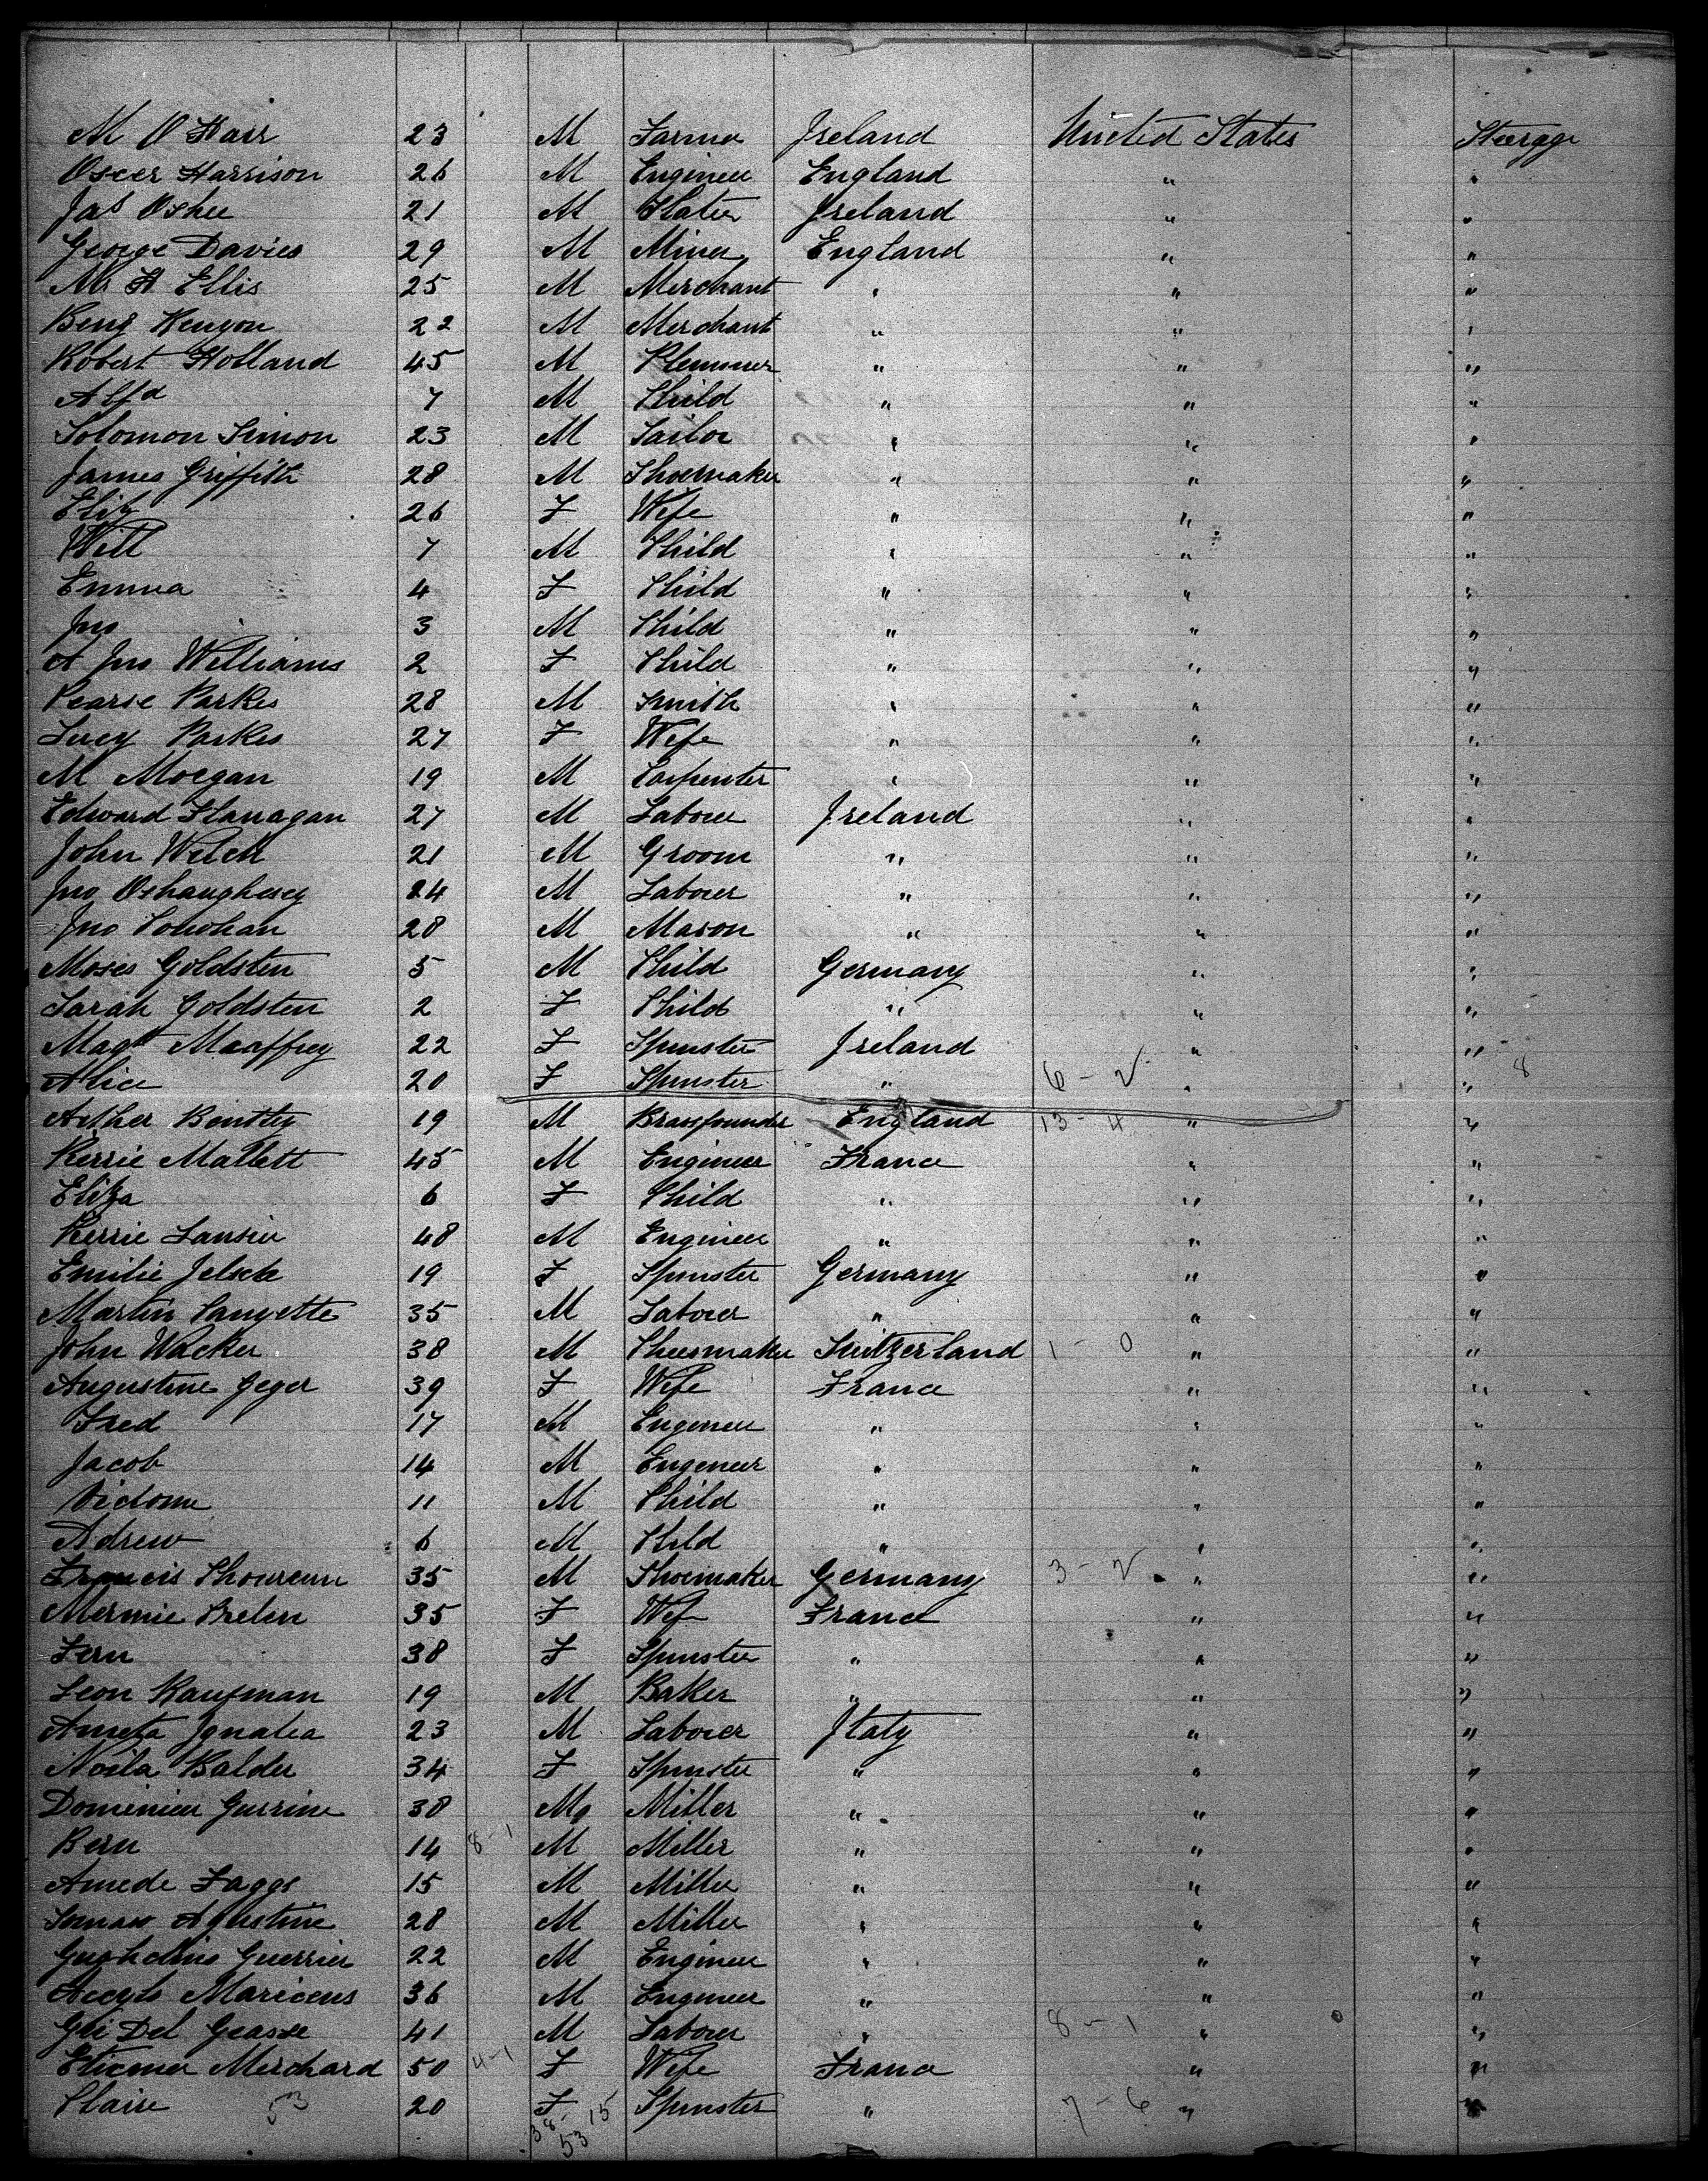 M O Harr 23 M Farmer Ireland United States Steerage
Oscer Harrison 26 M Engineer England " "
Jas Oshee 21 M Slater Ireland " "
George Davies 29 M Miner England " "
Mr H Ellis 25 M Merchant " " "
Benj Kenyon 22 M Merchant " " "
Robert Holland 45 M " " "
Alfd 7 M Child " " "
Solomon Simon 23 M Tailor " " "
James Griffith 28 M Shoemaker " " "
Eliz 26 F Wife " " "
Will 7 M Child " " "
Emma 4 F Child " " "
Jno 3 M Child " " "
A Jno Williams 2 F Child " " "
Pearse Parkes 28 M Smith " " "
Lucy Parkes 27 F Wife " " "
M Morgan 19 M Carpenter " " "
Edward Flanagan 27 M Laborer Ireland " "
John Welch 21 M Groom " " "
Jno Oshaughesey 24 M Laborer " " "
Jno 28 M Mason " " "
Moses Goldsten 5 M Child Germany " "
Sarah Goldsten 2 F Child " " "
Magt Maaffrey 22 F Spinster Ireland " "
Alice 20 F Spinster " 6 - 2 " " 8
Arther Bentley 19 M Brassfounder England 13 - 4 " "
Pierrie Mallett 45 M Engineer France " "
Eliza 6 F Child " " "
Pierrie Lansier 48 M Engineer " " "
Emilie Jelsch 19 F Spinster Germany " "
Martin 35 M Laborer " " "
John Wacker 38 M Shoemaker Switzerland 1 - 0 " "
Augustine Jeger 39 F Wife France " "
Fred 17 M Engeneer " " "
Jacob 14 M Engeneer " " "
11 M Child " " "
Adrew 6 M Child " " "
Francis 35 M Shoemaker Germany 3 - 2 " "
Mermie 35 F Wife France " "
Fern 38 F Spinster " " "
Leon Kaufman 19 M Baker " " "
Ignatea 23 M Laborer Italy " "
Noila Balder 34 F Spinster " " "
Gurrine 38 M Miller " " "
Bern 14 8-1 M Miller " " "
Amede Faggs 15 M Miller " " "
Agustine 28 M Miller " " "
Guerrier 22 M Engineer " " "
36 M Engineer " " "
Gli Del Grasse 41 M Laborer " 8 - 1 " "
Merchard 50 4-1 F Wife France " "
Claire 53 20 F Spinster " 7 - 6 " "
38 - 15
53